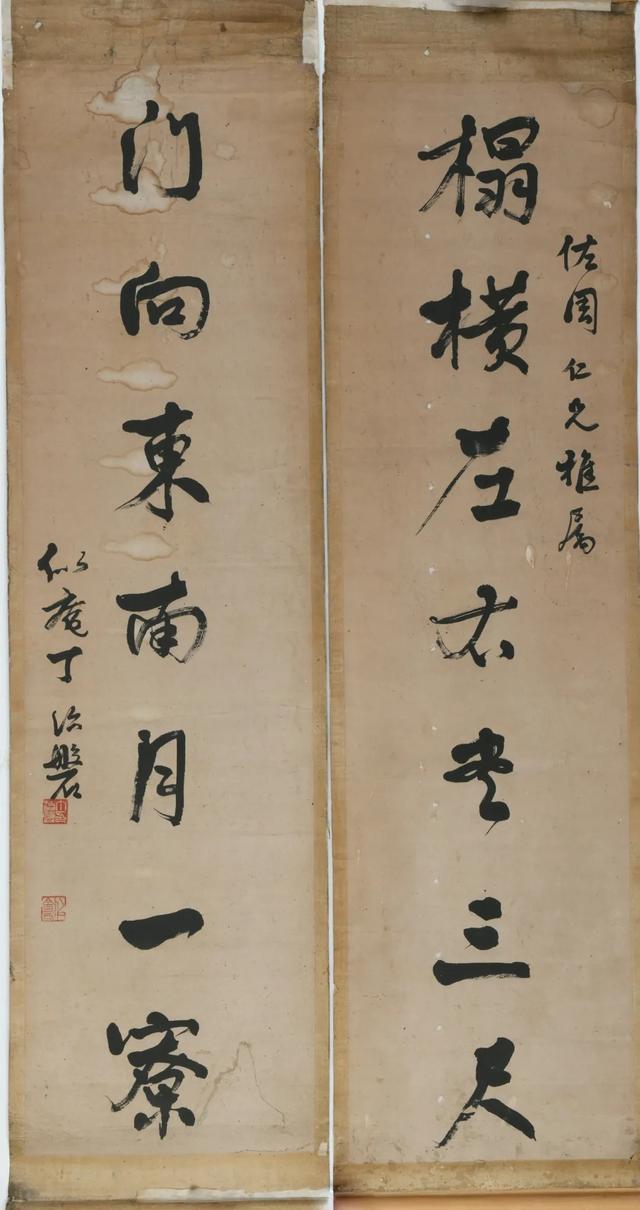 佐周仁兄雅屬
榻橫左右書三尺
門向東南月一寮
似庵丁治磐